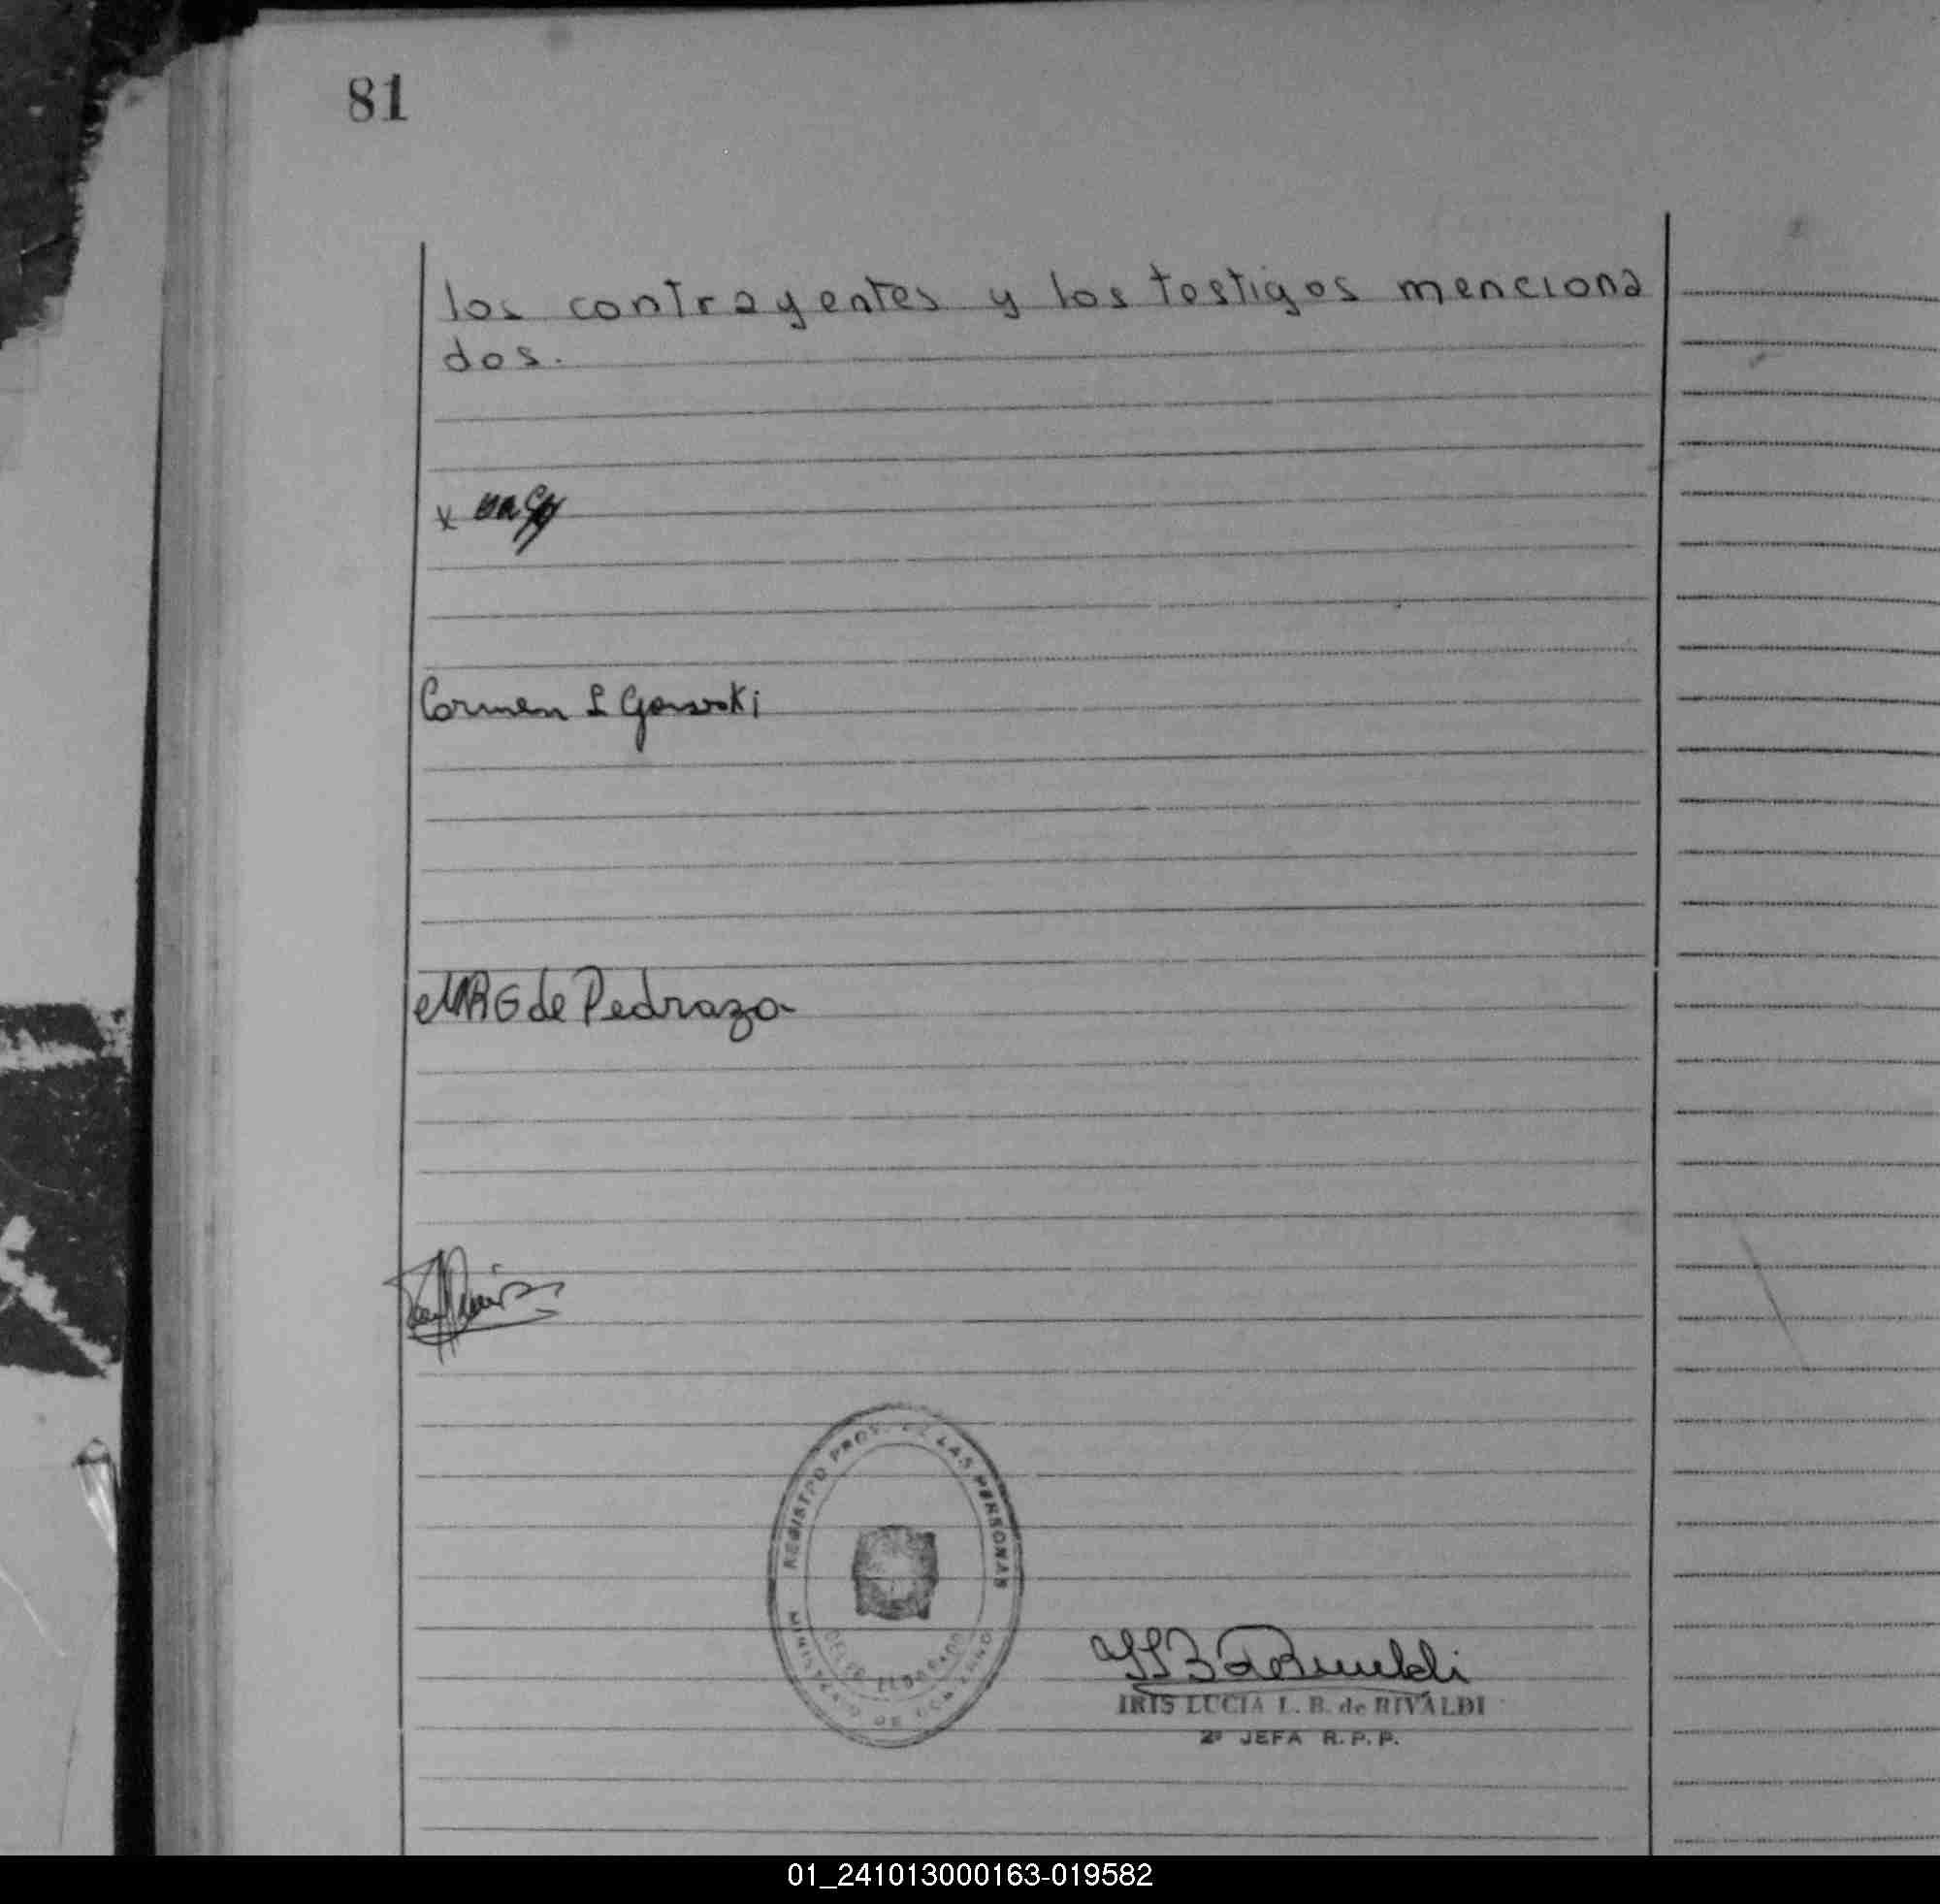 81
los contrayentes y los testigos menciona
dos.
x
Carmen L Gorsoski
MRG de Pedrazo
REGISTRO PROV. DE LAS PERSONAS
MINISTERIO DE
DELEG. ELDORADO
IRIS LUCIA L. B. de RIVALDI
2ª JEFA R.P.P.
01_241013000163-019582